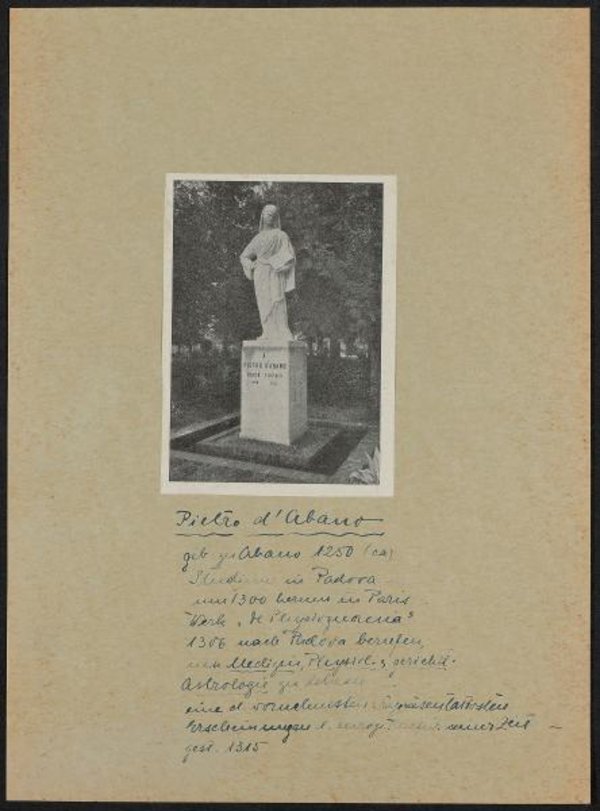 A
PIETRO D'ABANO
Pietro d'Abano
geb zu Abano 1250 (ca)
Studium in Padova
um 1300 herum in Paris
Werk „De Physiognomia"
1306 nach Padova berufen
um Medizin, Physiol. 
Astrologie zu
eine d. vornehmsten
Erscheinungen seiner Zeit –
gest. 1315